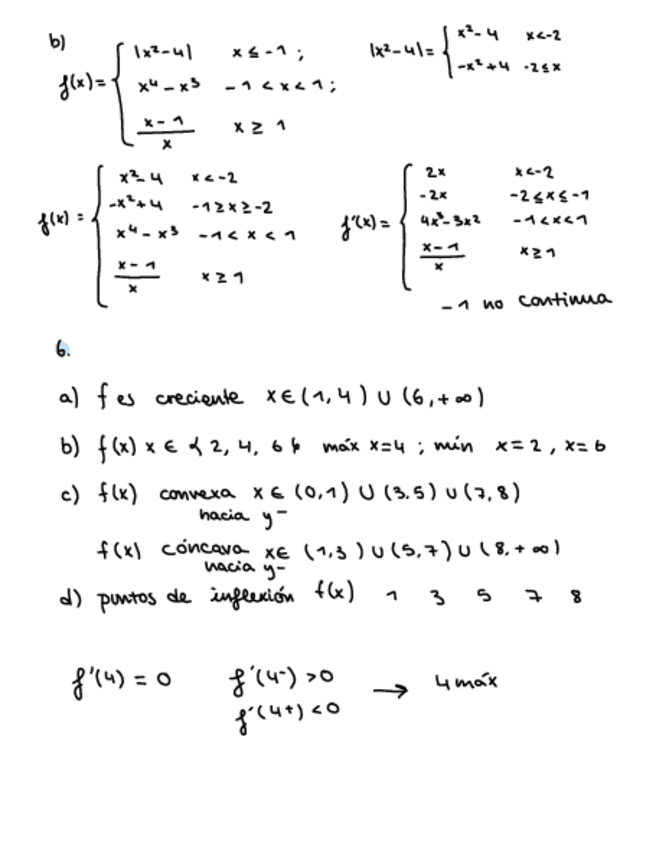 b)
f(x) = { |x²-4| x ≤ -1 ;
x⁴ - x³ -1 < x < 1 ;
x - 1 / x x ≥ 1
|x²-4| = { x² - 4 x < -2
-x² + 4 -2 ≤ x
f(x) = { x² - 4 x < -2
-x² + 4 -1 ≥ x ≥ -2
x⁴ - x³ -1 < x < 1
x - 1 / x x ≥ 1
f'(x) = { 2x x < -2
-2x -2 ≤ x ≤ -1
4x³ - 3x² -1 < x < 1
x - 1 / x x ≥ 1
-1 no continua
6.
a) f es creciente x ∈ (1, 4) ∪ (6, +∞)
b) f(x) x ∈ { 2, 4, 6 } máx x=4 ; mín x=2, x=6
c) f(x) convexa x ∈ (0,1) ∪ (3,5) ∪ (7,8)
hacia y-
f(x) cóncava x ∈ (1,3) ∪ (5,7) ∪ (8, +∞)
hacia y-
d) puntos de inflexión f(x) 1 3 5 7 8
f'(4) = 0 f'(4-) > 0 → 4 máx
f'(4+) < 0